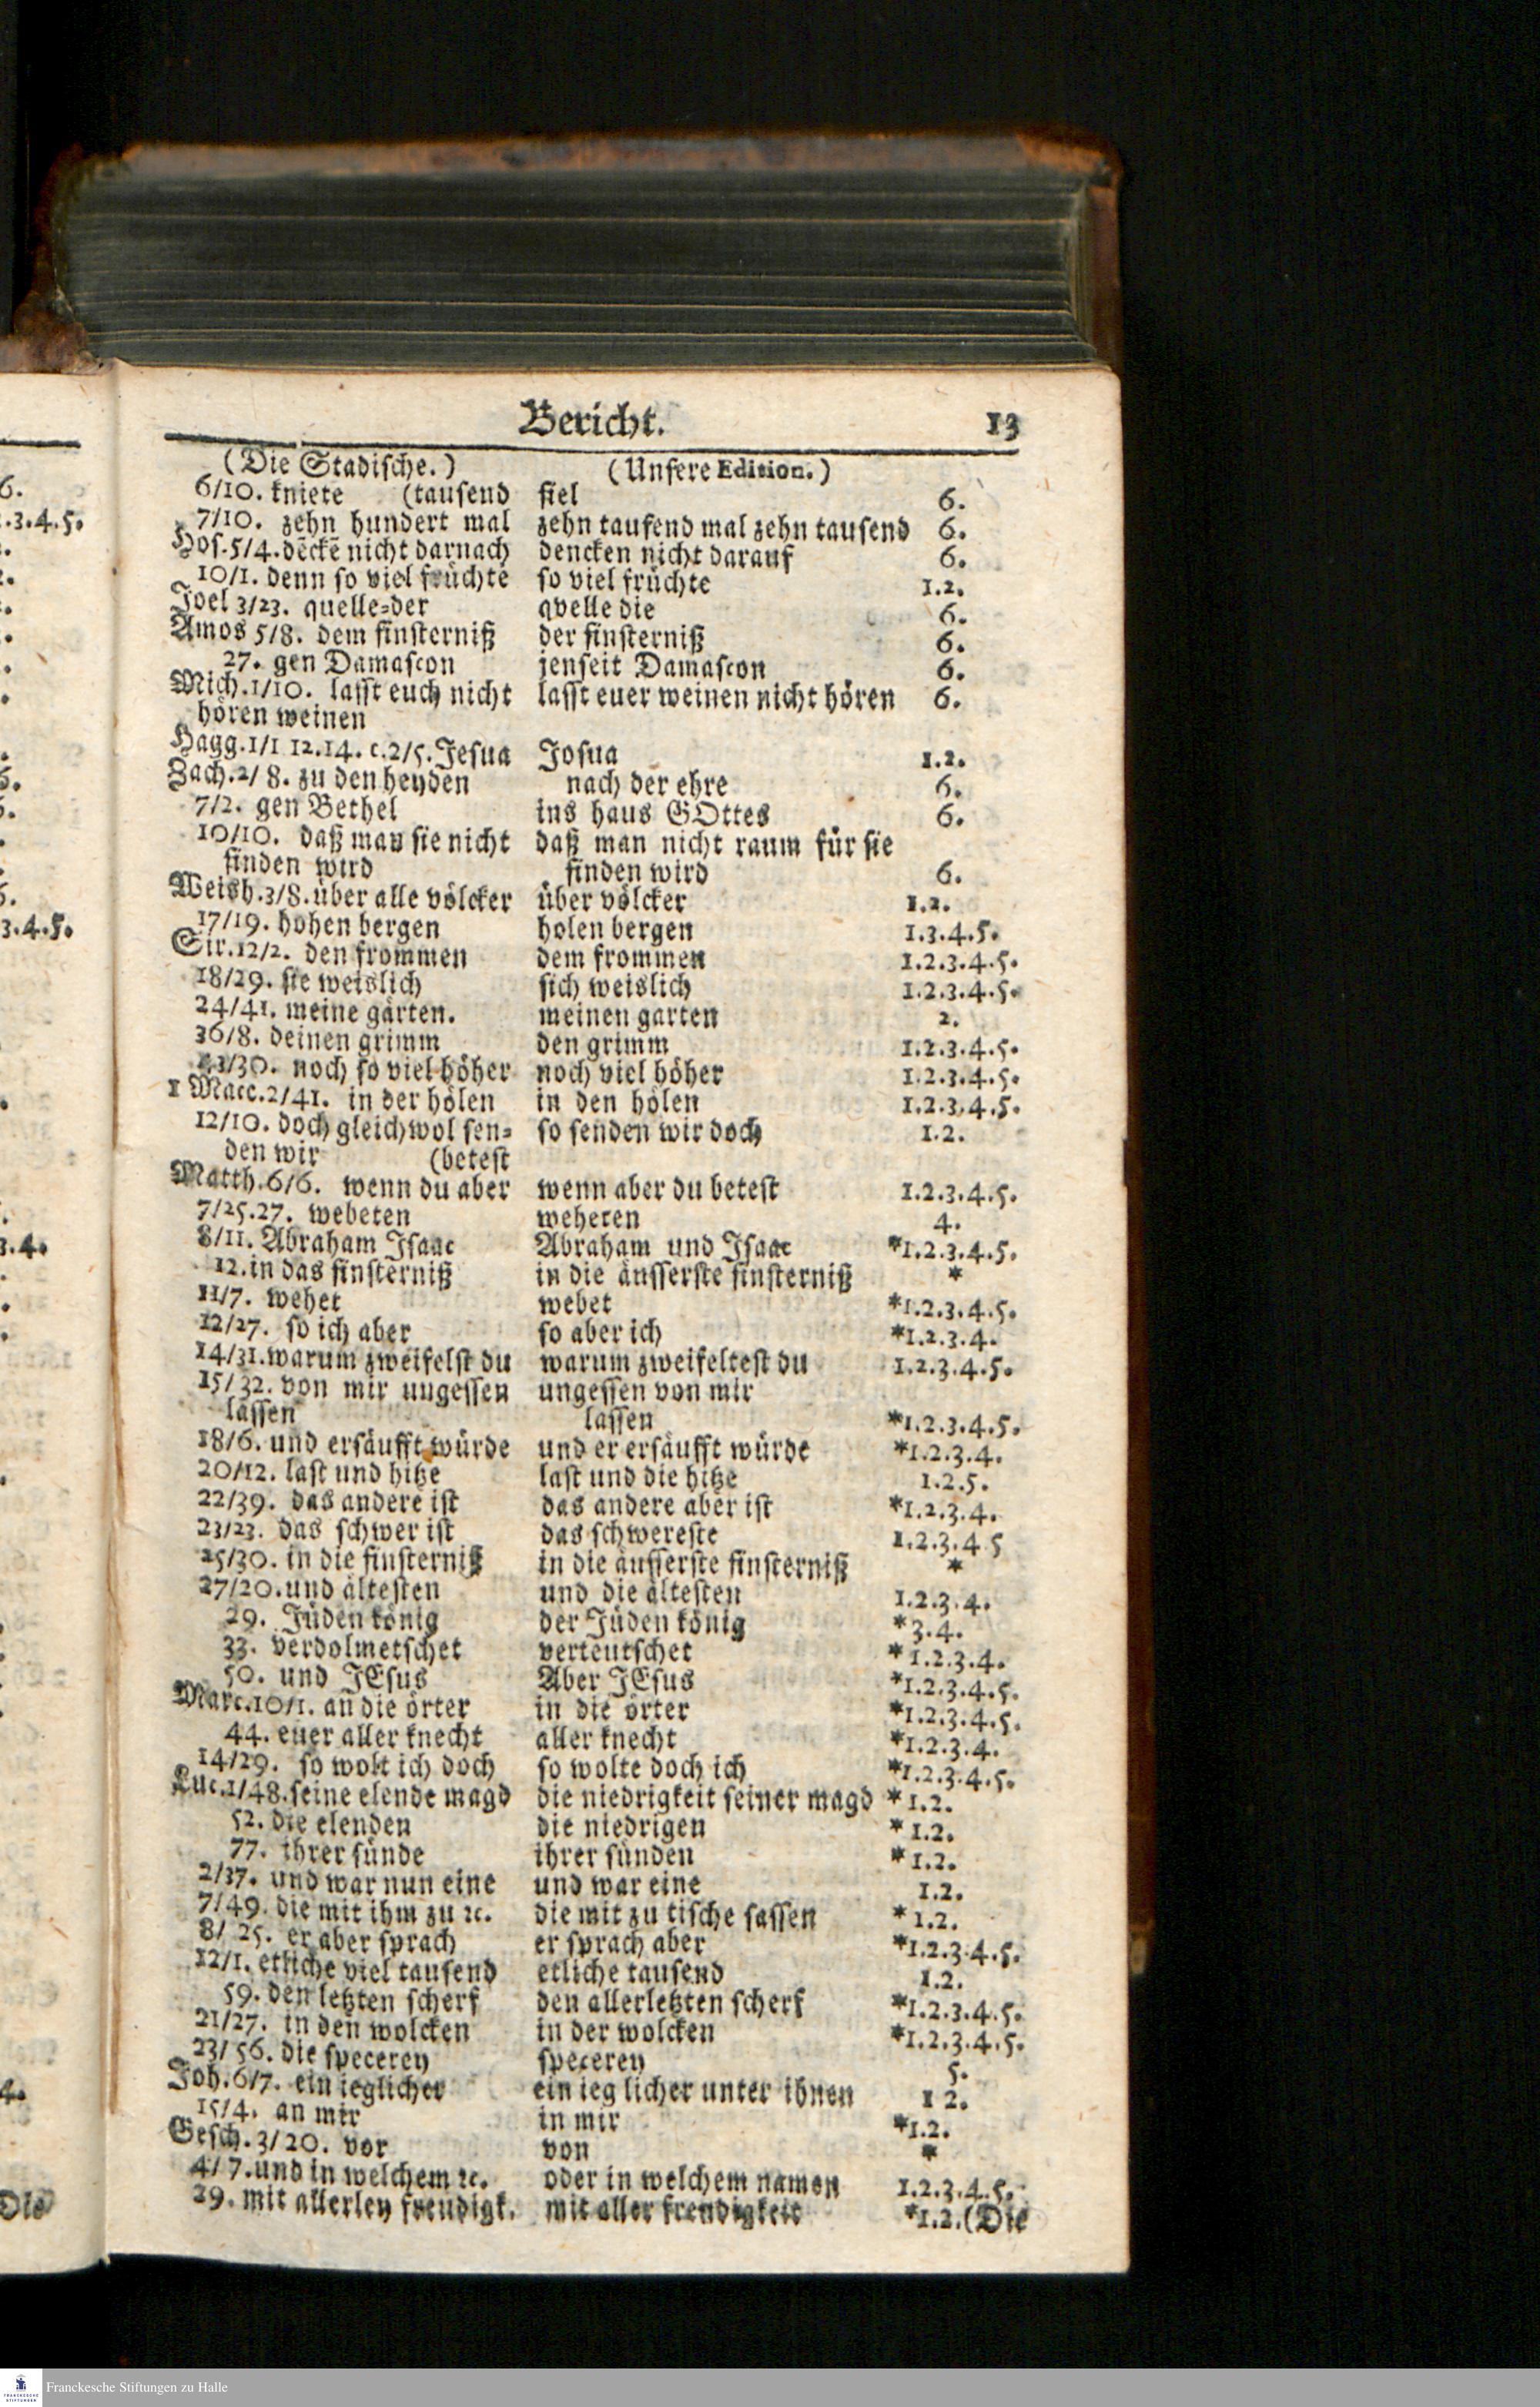 Bericht. 13
(Die Stadische.) (Unsere Edition.)
6/10. kniete (tausend fiel 6.
7/10. zehn hundert mal zehn tausend mal zehn tausend 6.
Hos. 5/4. dēckē nicht darnach dencken nicht darauf 6.
10/1. denn so viel früchte so viel früchte 1.2.
Joel 3/23. quelle=der qvelle die 6.
Amos 5/8. dem finsterniß der finsterniß 6.
27. gen Damascon jenseit Damascon 6.
Mich. 1/10. lasst euch nicht lasst euer weinen nicht hören 6.
hören weinen
Hagg. 1/1 12.14. c.2/5. Jesua Josua 1.2.
Zach. 2/8. zu den heyden nach der ehre 6.
7/2. gen Bethel ins haus GOttes 6.
10/10. daß man sie nicht daß man nicht raum für sie
finden wird finden wird 6.
Weish. 3/8. über alle völcker über völcker 1.2.
17/19. hohen bergen holen bergen 1.3.4.5.
Sir. 12/2. den frommen dem frommen 1.2.3.4.5.
18/29. sie weislich sich weislich 1.2.3.4.5.
24/41. meine gärten. meinen garten 2.
36/8. deinen grimm den grimm 1.2.3.4.5.
43/30. noch so viel höher noch viel höher 1.2.3.4.5.
1 Macc. 2/41. in der hölen in den hölen 1.2.3.4.5.
12/10. doch gleichwol sen= so senden wir doch 1.2.
den wir (betest
Matth. 6/6. wenn du aber wenn aber du betest 1.2.3.4.5.
7/25.27. webeten weheten 4.
8/11. Abraham Isaac Abraham und Isaac *1.2.3.4.5.
12. in das finsterniß in die äusserste finsterniß *
11/7. wehet webet *1.2.3.4.5.
12/27. so ich aber so aber ich *1.2.3.4.
14/31. warum zweifelst du warum zweifeltest du 1.2.3.4.5.
15/32. von mir ungessen ungessen von mir
lassen lassen *1.2.3.4.5.
18/6. und ersäufft würde und er ersäufft würde *1.2.3.4.
20/12. last und hitze last und die hitze 1.2.5.
22/39. das andere ist das andere aber ist *1.2.3.4.
23/23. das schwer ist das schwereste 1.2.3.4 5
25/30. in die finsterniß in die äusserste finsterniß *
27/20. und ältesten und die ältesten 1.2.3.4.
29. Jüden könig der Jüden könig *3.4.
33. verdolmetschet verteutschet *1.2.3.4.
50. und JEsus Aber JEsus *1.2.3.4.5.
Marc. 10/1. an die örter in die örter *1.2.3.4.5.
44. euer aller knecht aller knecht *1.2.3.4.
14/29. so wolt ich doch so wolte doch ich *1.2.3.4.5.
Luc. 1/48. seine elende magd die niedrigkeit seiner magd *1.2.
52. die elenden die niedrigen *1.2.
77. ihrer sünde ihrer sünden *1.2.
2/37. und war nun eine und war eine 1.2.
7/49. die mit ihm zu ꝛc. die mit zu tische sassen *1.2.
8/25. er aber sprach er sprach aber *1.2.3.4.5.
12/1. etliche viel tausend etliche tausend 1.2.
59. den letzten scherf den allerletzten scherf *1.2.3.4.5.
21/27. in den wolcken in der wolcken *1.2.3.4.5.
23/56. die specerey specerey 5.
Joh. 6/7. ein ieglicher ein ieg licher unter ihnen 1 2.
15/4. an mir in mir *1.2.
Gesch. 3/20. vor von *
4/7. und in welchem ꝛc. oder in welchem namen 1.2.3.4.5.
29. mit allerley freudigk. mit aller freudigkeit *1.2. (Die
Franckesche Stiftungen zu Halle